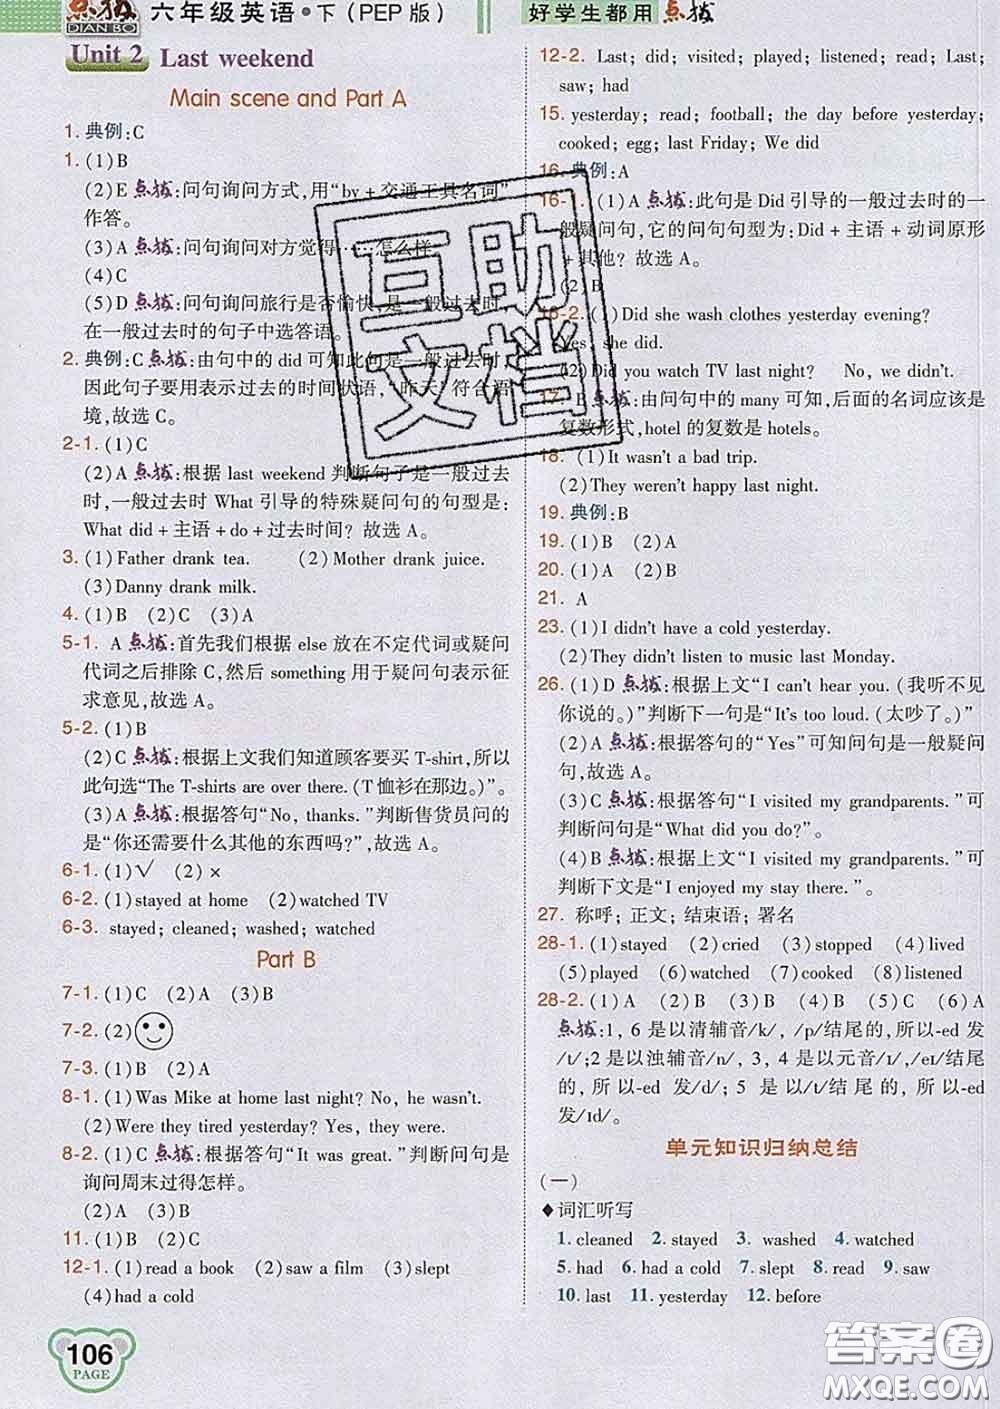 点拨 六年级英语·下(PEP版) 好学生都用点拨
DIAN BO
Unit 2 Last weekend
Main scene and Part A
1. 典例:C
1. (1)B
(2)E 点拨:问句询问方式,用“by+交通工具名词”
作答。
(3)A 点拨:问句询问对方觉得……怎么样
(4)C
(5)D 点拨:问句询问旅行是否愉快,是一般过去时,
在一般过去时的句子中选答语。
2. 典例:C 点拨:由句中的 did 可知此句是一般过去时,
因此句子要用表示过去的时间状语,“昨天”符合语
境,故选 C。
2-1. (1)C
(2)A 点拨:根据 last weekend 判断句子是一般过去
时,一般过去时 What 引导的特殊疑问句的句型是:
What did+主语+do+过去时间? 故选 A。
3. (1)Father drank tea. (2)Mother drank juice.
(3)Danny drank milk.
4. (1)B (2)C (3)A
5-1. A 点拨:首先我们根据 else 放在不定代词或疑问
代词之后排除 C,然后 something 用于疑问句表示征
求意见,故选 A。
5-2. (1)B
(2)C 点拨:根据上文我们知道顾客要买 T-shirt,所以
此句选“The T-shirts are over there.(T恤衫在那边。)”。
(3)A 点拨:根据答句“No, thanks.”判断售货员问的
是“你还需要什么其他的东西吗?”,故选 A。
6-1. (1)√ (2)×
6-2. (1)stayed at home (2)watched TV
6-3. stayed; cleaned; washed; watched
Part B
7-1. (1)C (2)A (3)B
7-2. (2)
7-3. (1)B (2)A
8-1. (1)Was Mike at home last night? No, he wasn't.
(2)Were they tired yesterday? Yes, they were.
8-2. (1)C 点拨:根据答句“It was great.”判断问句是
询问周末过得怎样。
(2)A (3)B
11. (1)B (2)C
12-1. (1)read a book (2)saw a film (3)slept
(4)had a cold
106
PAGE
12-2. Last; did; visited; played; listened; read; Last;
saw; had
15. yesterday; read; football; the day before yesterday;
cooked; egg; last Friday; We did
16. 典例:A
16-1. (1)A 点拨:此句是 Did 引导的一般过去时的一
般疑问句,它的问句句型为:Did+主语+动词原形
+其他? 故选 A。
(2)B
16-2. (1)Did she wash clothes yesterday evening?
Yes, she did.
(2)Did you watch TV last night? No, we didn't.
17. B 点拨:由问句中的 many 可知,后面的名词应该是
复数形式,hotel 的复数是 hotels。
18. (1)It wasn't a bad trip.
(2)They weren't happy last night.
19. 典例:B
19. (1)B (2)A
20. (1)A (2)B
21. A
23. (1)I didn't have a cold yesterday.
(2)They didn't listen to music last Monday.
26. (1)D 点拨:根据上文“I can't hear you.(我听不见
你说的。)”判断下一句是“It's too loud.(太吵了。)”
(2)A 点拨:根据答句的“Yes”可知问句是一般疑问
句,故选 A。
(3)C 点拨:根据答句“I visited my grandparents.”可
判断问句是“What did you do?”。
(4)B 点拨:根据上文“I visited my grandparents.”可
判断下文是“I enjoyed my stay there.”。
27. 称呼; 正文; 结束语; 署名
28-1. (1)stayed (2)cried (3)stopped (4)lived
(5)played (6)watched (7)cooked (8)listened
28-2. (1)A (2)B (3)B (4)B (5)C (6)A
点拨:1, 6 是以清辅音/k/, /p/结尾的,所以-ed 发
/t/;2 是以浊辅音/n/, 3, 4 是以元音/ɪ/,/eɪ/结尾
的,所以-ed 发/d/; 5 是以/t/结尾的,所以-ed
发/ɪd/。
单元知识归纳总结
(一)
◆词汇听写
1. cleaned 2. stayed 3. washed 4. watched
5. had 6. had a cold 7. slept 8. read 9. saw
10. last 11. yesterday 12. before
互助
文档
答案圈
MXQE.COM